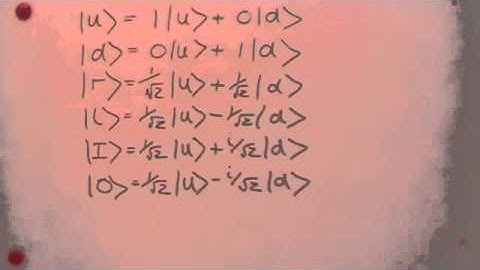 |u⟩ = 1|u⟩ + 0|d⟩
|d⟩ = 0|u⟩ + 1|d⟩
|r⟩ = 1/√2|u⟩ + 1/√2|d⟩
|l⟩ = 1/√2|u⟩ - 1/√2|d⟩
|I⟩ = 1/√2|u⟩ + i/√2|d⟩
|O⟩ = 1/√2|u⟩ - i/√2|d⟩